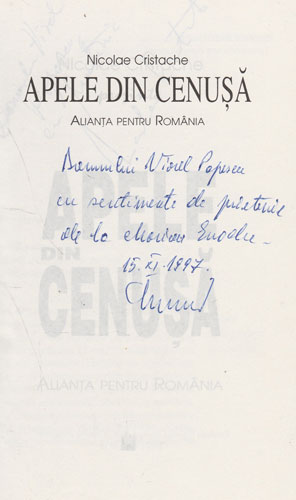 Nicolae Cristache
APELE DIN CENUȘĂ
ALIANȚA PENTRU ROMÂNIA
Domnului Viorel Popescu
cu sentimente de prietenie
de la
15.XI.1997.
APELE
DIN
CENUȘĂ
ALIANȚA PENTRU ROMÂNIA